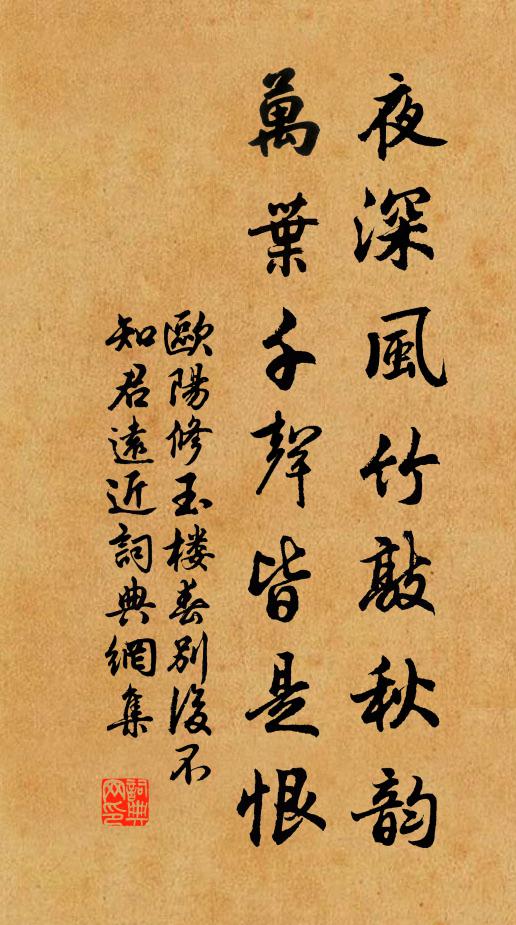 夜深風竹敲秋韵
萬葉千聲皆是恨
歐陽修玉楼春别後不
知君遠近詞典網集
詞典
网印